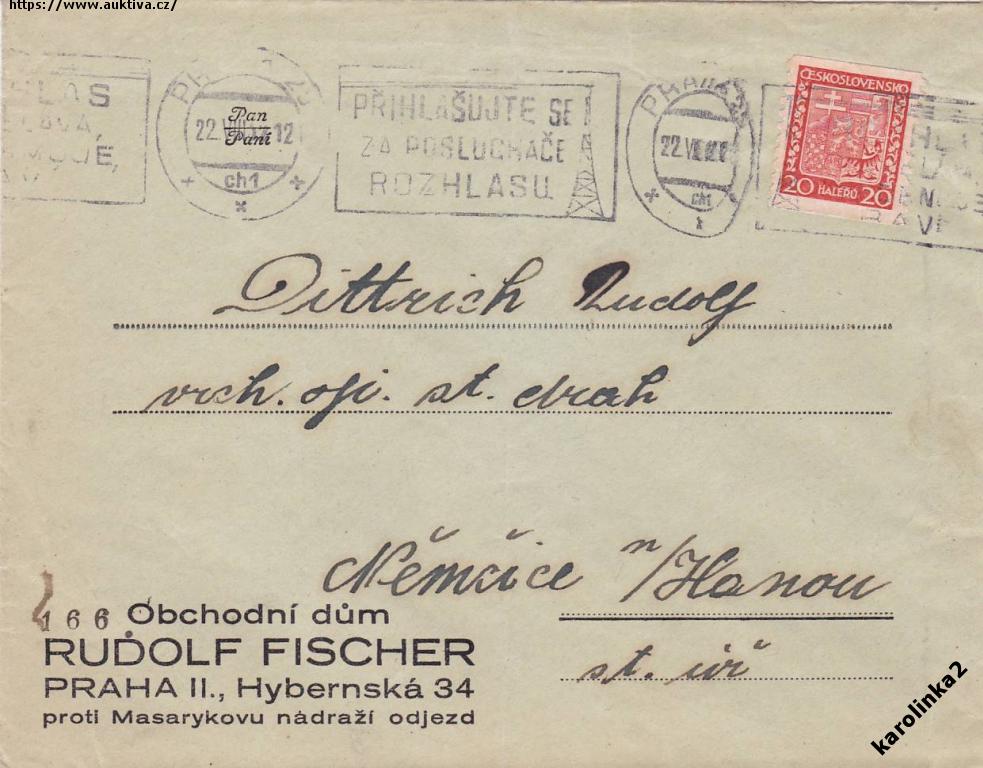 https://www.auktiva.cz/
PŘIHLAŠUJTE SE
ZA POSLUCHAČE
ROZHLASU
PRAHA
22.
12
ch1
Pan
Paní
PRAHA
22.
ch1
ČESKOSLOVENSKO
20 HALÉŘŮ 20
Dittrich Rudolf
vrch. ofi. st. drah
Němčice n/Hanou
st. úř
166 Obchodní dům
RUDOLF FISCHER
PRAHA II., Hybernská 34
proti Masarykovu nádraží odjezd
karolinka2